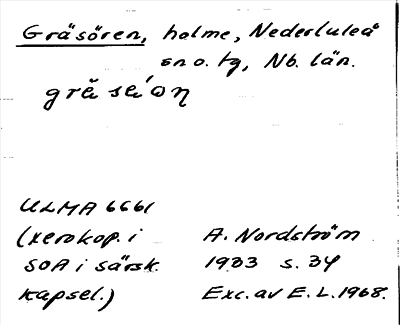 Gräsören, holme, Nederluleå
sn o. tg, Nb. län.
grä̆ se´ɷƞ
ULMA 6661
(xerokop. i
SOA i särsk.
kapsel.)
A. Nordström
1933 s. 34
Exc. av E. L. 1968.